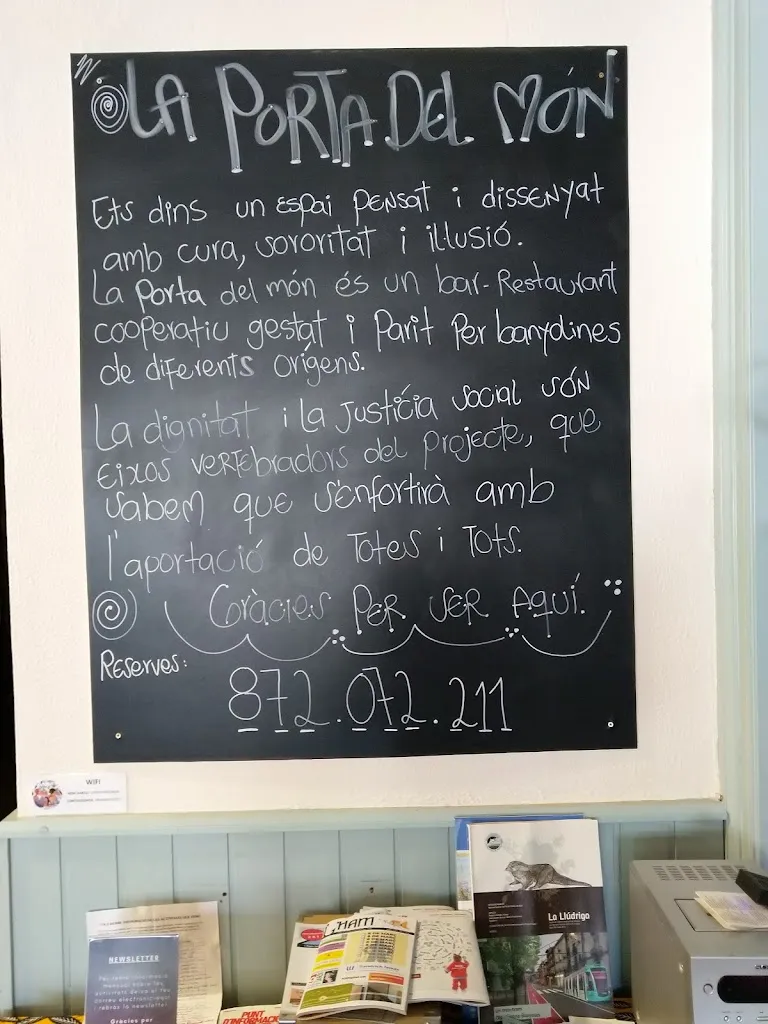 LA PORTA DEL MÓN
Ets dins un espai pensat i dissenyat
amb cura, sororitat i il·lusió.
La Porta del món és un bar-Restaurant
cooperatiu gestat i Parit Per banyolines
de diferents orígens.
La dignitat i la Justícia social són
eixos vertebradors del projecte, que
sabem que s'enfortirà amb
l'aportació de Totes i Tots.
Gràcies PER SER AQUÍ.
Reserves:
872.072.211
WIFI
NEWSLETTER
Gràcies per
HAM
PUNT
D'INFORMACI
La Llúdriga